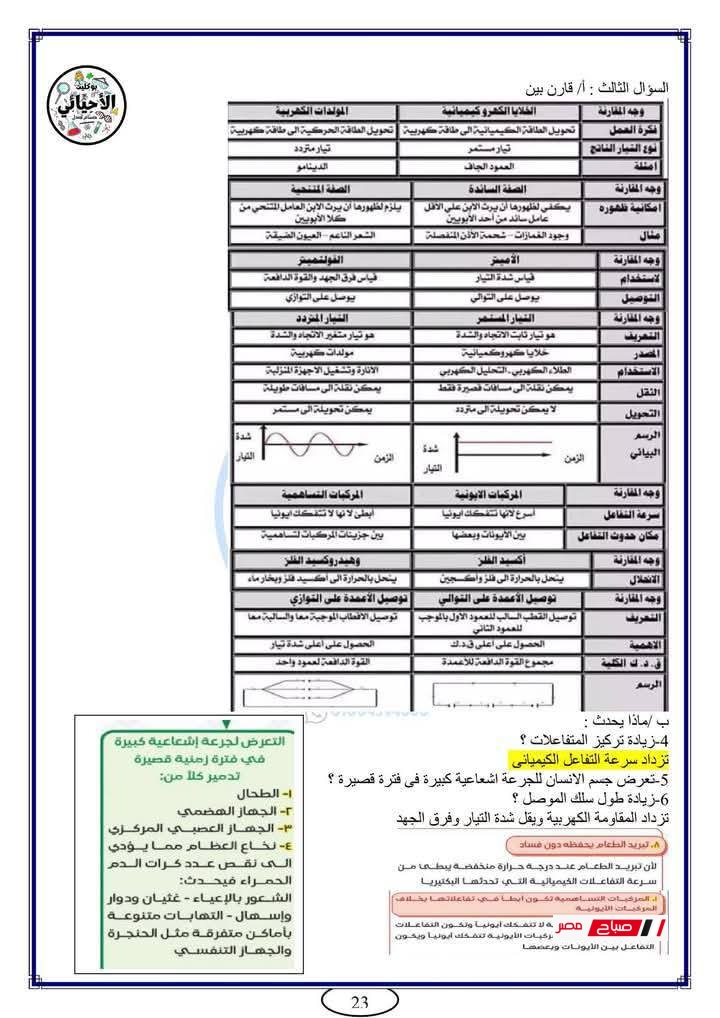 بوكليت
الأحيائي
السؤال الثالث : أ/ قارن بين
وجه المقارنة الخلايا الكهروكيميائية المولدات الكهربية
فكرة العمل تحويل الطاقة الكيميائية الى طاقة كهربية تحويل الطاقة الحركية الى طاقة كهربية
نوع التيار الناتج تيار مستمر تيار متردد
امثلة العمود الجاف الدينامو
وجه المقارنة الصفة السائدة الصفة المتنحية
امكانية ظهوره يكفى لظهورها أن يرث الابن على الأقل يلزم لظهورها أن يرث الابن العامل المتنحي من
عامل سائد من أحد الأبويين كلا الأبويين
مثال وجود الغمازات – شحمة الأذن المنفصلة الشعر الناعم – العيون الضيقة
وجه المقارنة الأميتر الفولتميتر
لاستخدام قياس شدة التيار قياس فرق الجهد والقوة الدافعة
التوصيل يوصل على التوالي يوصل على التوازي
وجه المقارنة التيار المستمر التيار المتردد
التعريف هو تيار ثابت الاتجاه والشدة هو تيار متغير الاتجاه والشدة
المصدر خلايا كهروكميائية مولدات كهربية
الاستخدام الطلاء الكهربي-التحليل الكهربي الأنارة وتشغيل الاجهزة المنزلية
النقل يمكن نقلة الى مسافات قصيرة فقط يمكن نقلة الى مسافات طويلة
التحويل لا يمكن تحويلة الى متردد يمكن تحويلة الى مستمر
الرسم البياني شدة التيار الزمن شدة التيار الزمن
وجه المقارنة المركبات الايونية المركبات التساهمية
سرعة التفاعل أسرع لانها تتفكك ايونيا أبطئ لا نها لا تتفكك ايونيا
مكان حدوث التفاعل بين الأيونات وبعضها بين جزيئات المركبات لتساهمية
وجه المقارنة أكسيد الفلز وهيدروكسيد الفلز
الانحلال ينحل بالحرارة الى فلز وأكسجين ينحل بالحرارة الى أكسيد فلز وبخار ماء
وجه المقارنة توصيل الأعمدة على التوالي توصيل الأعمدة على التوازي
التعريف توصيل القطب السالب للعمود الأول بالموجب توصيل الاقطاب الموجبة معا والسالبة معا
للعمود الثاني
الاهمية الحصول على اعلى ق.د.ك الحصول على اعلى شدة تيار
ق.د.ك الكلية مجموع القوة الدافعة للأعمدة القوة الدافعة لعمود واحد
الرسم
ب /ماذا يحدث :
4-زيادة تركيز المتفاعلات ؟
تزداد سرعة التفاعل الكيميائى
5-تعرض جسم الانسان للجرعة اشعاعية كبيرة فى فترة قصيرة ؟
6-زيادة طول سلك الموصل ؟
تزداد المقاومة الكهربية ويقل شدة التيار وفرق الجهد
٨. تبريد الطعام يحفظه دون فساد
لأن تبريد الطعام عند درجة حرارة منخفضة يبطى من
سرعة التفاعلات الكيميائية التي تحدثها البكتيريا
المركبات التساهمية تكون ابطأ في تفاعلاتها بخلاف
المركبات الأيونية
ة لا تتفكك أيونياً وتكون التفاعلات
ركبات الأيونية تتفكك أيونياً ويكون
التفاعل بين الأيونات وبعضها
صباح مصر
التعرض لجرعة إشعاعية كبيرة
في فترة زمنية قصيرة
تدمير كلاً من:
١- الطحال
٢- الجهاز الهضمي
٣- الجهاز العصبي المركزي
٤- نخاع العظام مما يؤدي
الى نقص عدد كرات الدم
الحمراء فيحدث:
الشعور بالإعياء - غثيان ودوار
وإسهال - التهابات متنوعة
بأماكن متفرقة مثل الحنجرة
والجهاز التنفسي
23